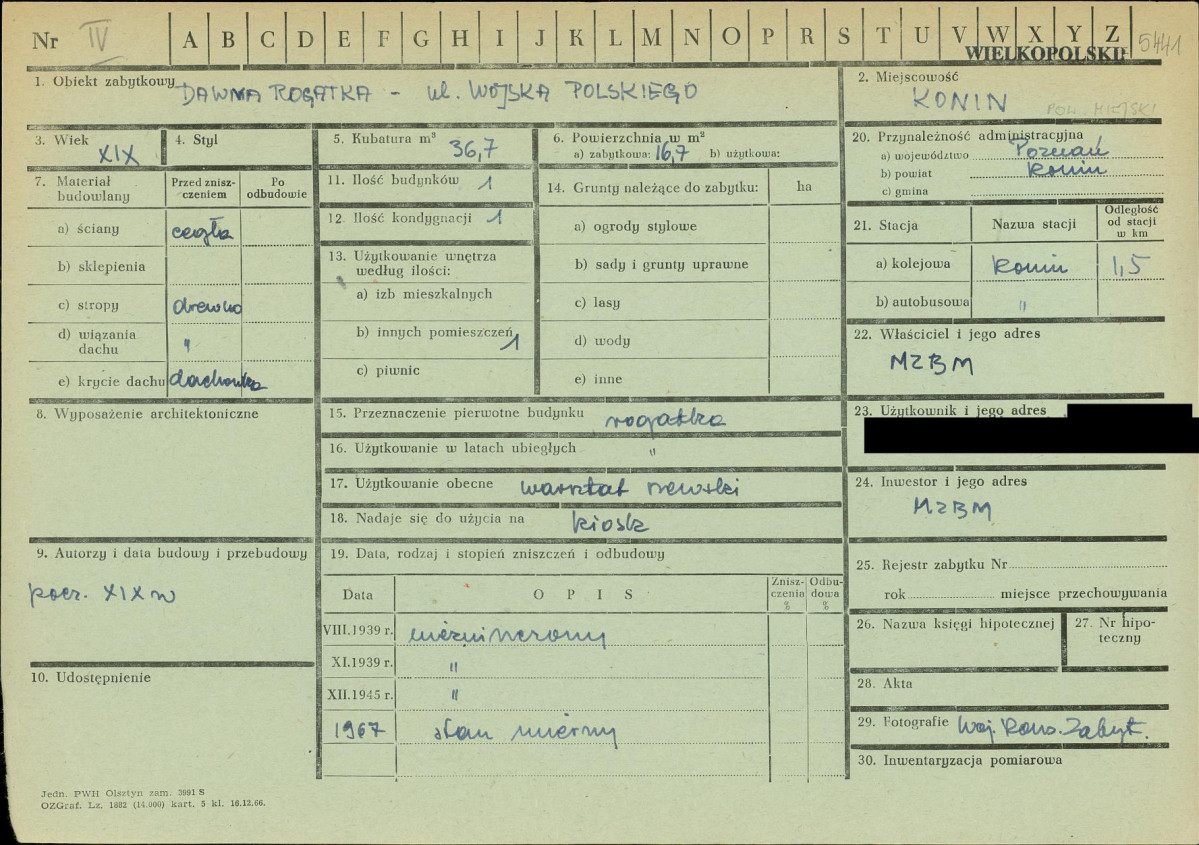 Nr IV A B C D E F G H I J K L M N O P R S T U V W X Y Z 5441
WIELKOPOLSKIE
1. Obiekt zabytkowy DAWNA ROGATKA - ul. WOJSKA POLSKIEGO
2. Miejscowość
KONIN
POW. MIEJSKI
3. Wiek XIX
4. Styl
5. Kubatura m³ 36,7
6. Powierzchnia w m²
a) zabytkowa: 16,7 b) użytkowa:
20. Przynależność administracyjna
a) województwo Poznań
b) powiat Konin
c) gmina
7. Materiał budowlany
Przed zniszczeniem
Po odbudowie
a) ściany cegła
b) sklepienia
c) stropy drewno
d) wiązania dachu "
e) krycie dachu dachówka
11. Ilość budynków 1
12. Ilość kondygnacji 1
13. Użytkowanie wnętrza
według ilości:
a) izb mieszkalnych
b) innych pomieszczeń 1
c) piwnic
14. Grunty należące do zabytku: ha
a) ogrody stylowe
b) sady i grunty uprawne
c) lasy
d) wody
e) inne
21. Stacja
Nazwa stacji
Odległość
od stacji
w km
a) kolejowa Konin 1,5
b) autobusowa "
22. Właściciel i jego adres
MZBM
8. Wyposażenie architektoniczne
15. Przeznaczenie pierwotne budynku rogatka
16. Użytkowanie w latach ubiegłych "
17. Użytkowanie obecne warsztat szewski
18. Nadaje się do użycia na kiosk
23. Użytkownik i jego adres
24. Inwestor i jego adres
MZBM
9. Autorzy i data budowy i przebudowy
pocz. XIX w
10. Udostępnienie
19. Data, rodzaj i stopień zniszczeń i odbudowy
Data
OPIS
Zniszczenia
%
Odbudowa
%
VIII.1939 r. niezniszczony
XI.1939 r. "
XII.1945 r. "
1967 stan mierny
25. Rejestr zabytku Nr
rok miejsce przechowywania
26. Nazwa księgi hipotecznej
27. Nr hipoteczny
28. Akta
29. Fotografie Woj. Kons. Zabyt.
30. Inwentaryzacja pomiarowa
Jedn. PWH Olsztyn zam. 3991 S
OZGraf. Lz. 1882 (14.000) kart. 5 kl. 16.12.66.